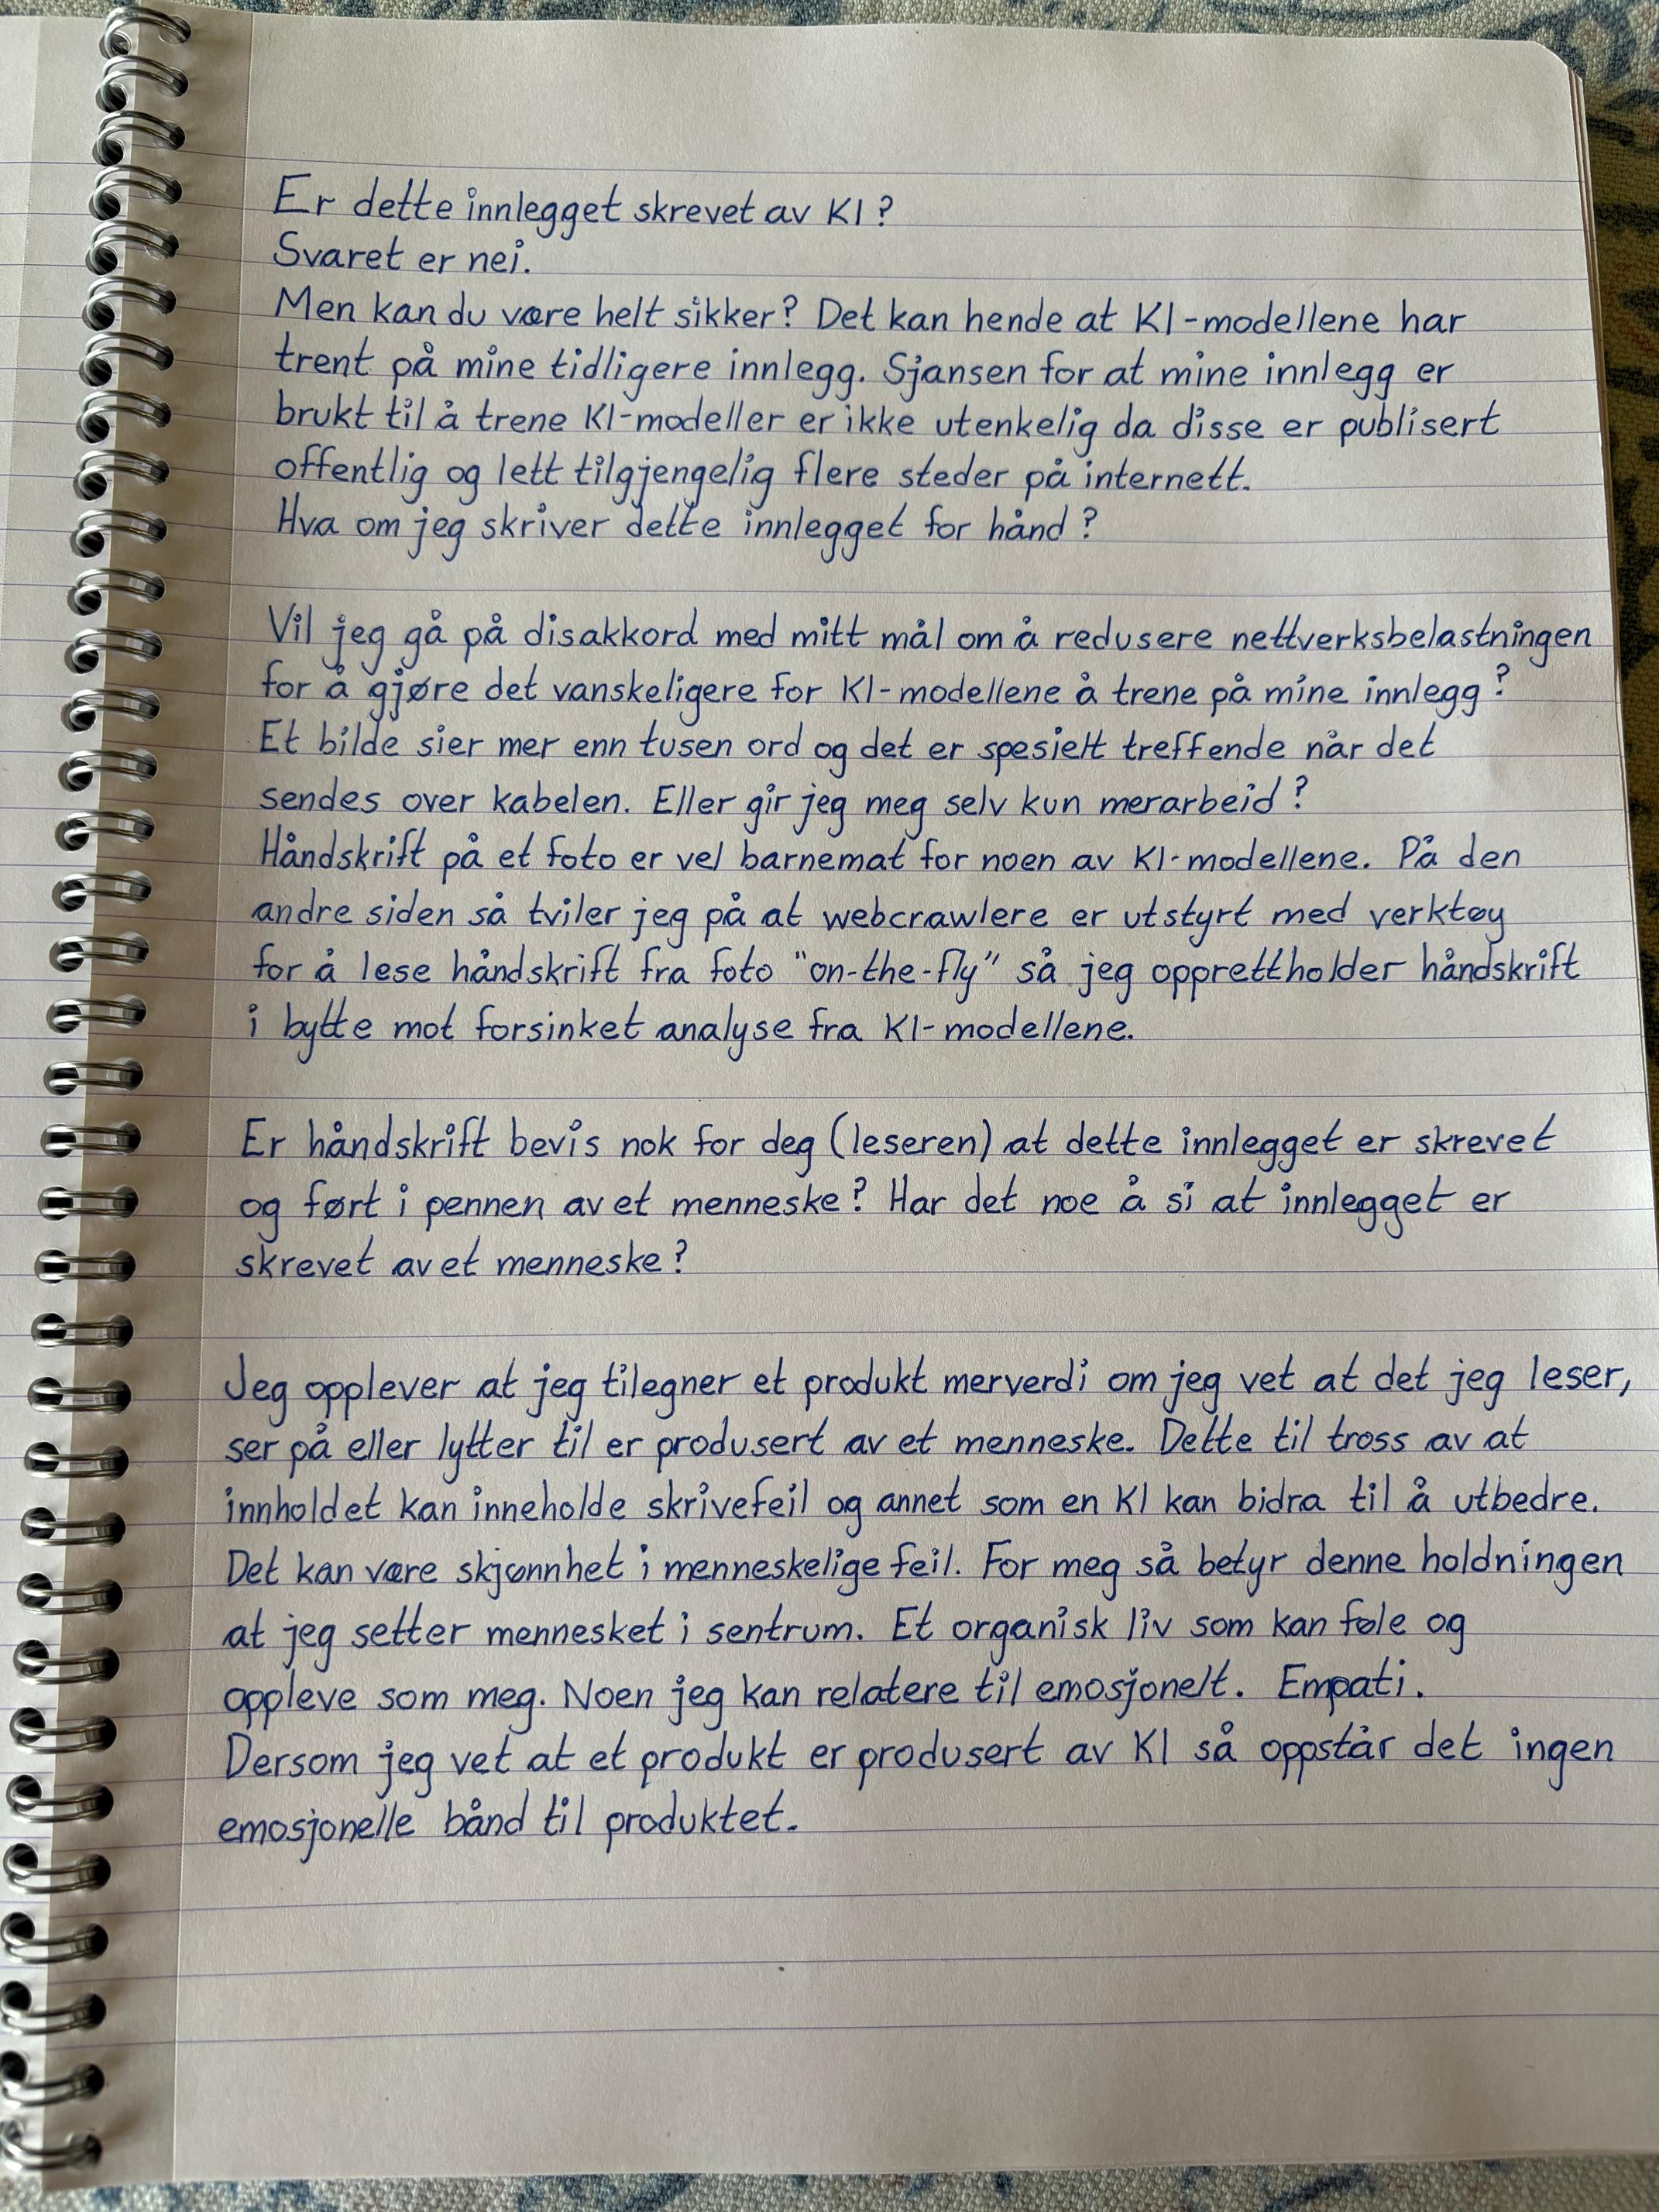 Er dette innlegget skrevet av KI?
Svaret er nei.
Men kan du være helt sikker? Det kan hende at KI-modellene har
trent på mine tidligere innlegg. Sjansen for at mine innlegg er
brukt til å trene KI-modeller er ikke utenkelig da disse er publisert
offentlig og lett tilgjengelig flere steder på internett.
Hva om jeg skriver dette innlegget for hånd?
Vil jeg gå på disakkord med mitt mål om å redusere nettverksbelastningen
for å gjøre det vanskeligere for KI-modellene å trene på mine innlegg?
Et bilde sier mer enn tusen ord og det er spesielt treffende når det
sendes over kabelen. Eller gir jeg meg selv kun merarbeid?
Håndskrift på et foto er vel barnemat for noen av KI-modellene. På den
andre siden så tviler jeg på at webcrawlere er utstyrt med verktøy
for å lese håndskrift fra foto "on-the-fly" så jeg opprettholder håndskrift
i bytte mot forsinket analyse fra KI-modellene.
Er håndskrift bevis nok for deg (leseren) at dette innlegget er skrevet
og ført i pennen av et menneske? Har det noe å si at innlegget er
skrevet av et menneske?
Jeg opplever at jeg tilegner et produkt merverdi om jeg vet at det jeg leser,
ser på eller lytter til er produsert av et menneske. Dette til tross av at
innholdet kan inneholde skrivefeil og annet som en KI kan bidra til å utbedre.
Det kan være skjønnhet i menneskelige feil. For meg så betyr denne holdningen
at jeg setter mennesket i sentrum. Et organisk liv som kan føle og
oppleve som meg. Noen jeg kan relatere til emosjonelt. Empati.
Dersom jeg vet at et produkt er produsert av KI så oppstår det ingen
emosjonelle bånd til produktet.